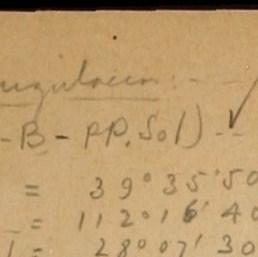 -B-PP.Sol) ✓
= 39° 35' 50
= 112° 16' 40
= 28° 07' 30